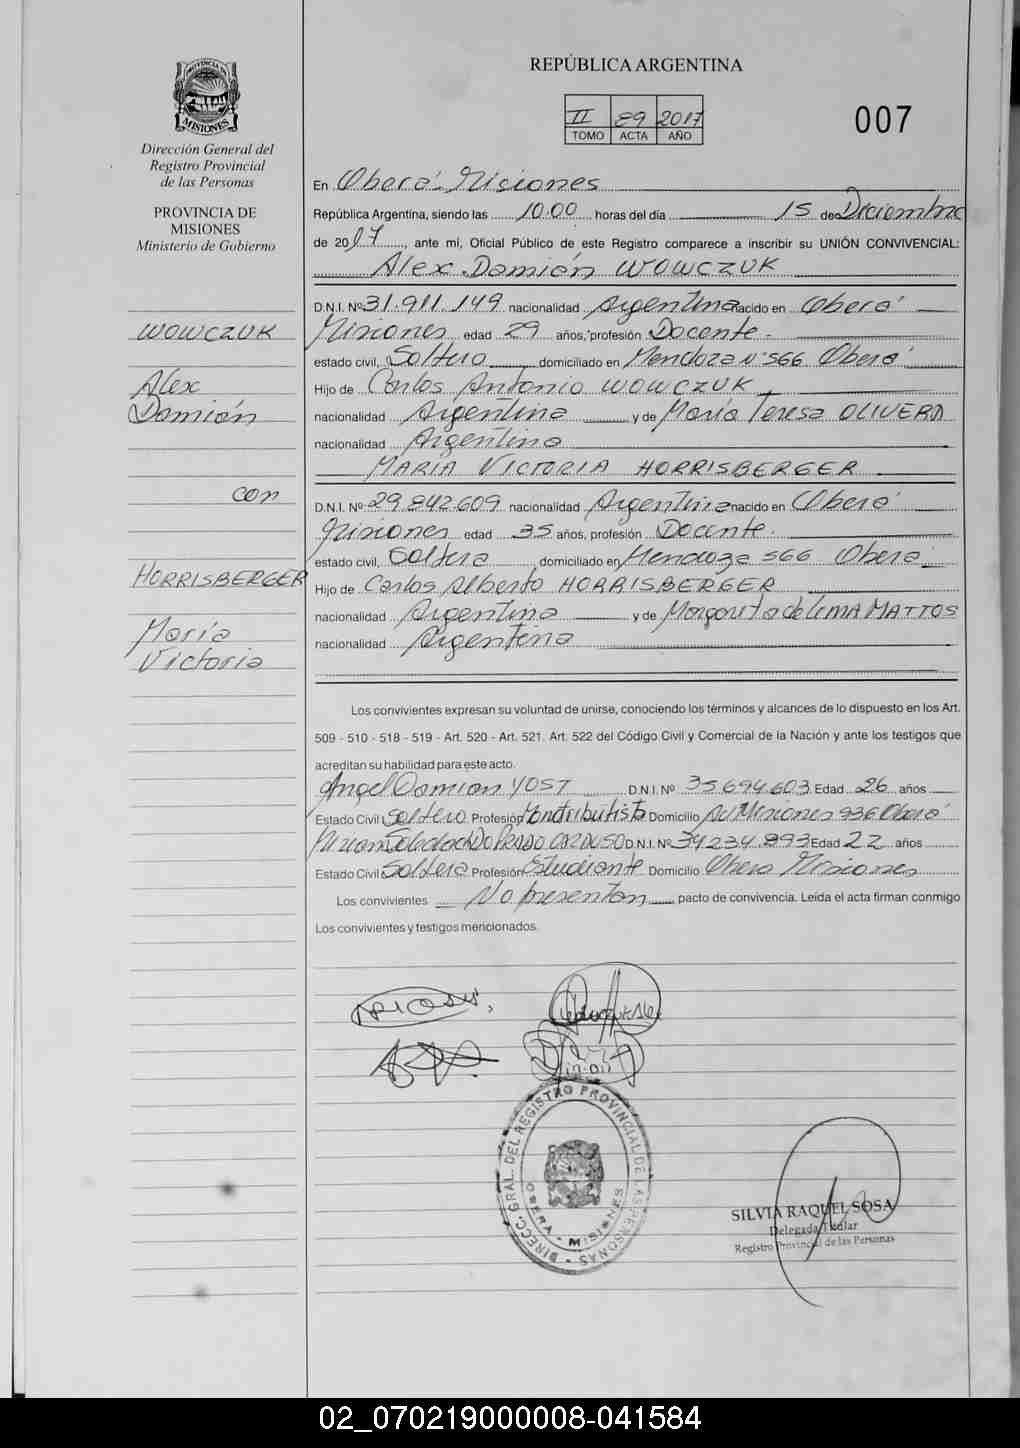 REPÚBLICA ARGENTINA
PROVINCIA DE MISIONES
II 89 2017
TOMO ACTA AÑO
007
Dirección General del
Registro Provincial
de las Personas
PROVINCIA DE
MISIONES
Ministerio de Gobierno
WOWCZUK
Alex
Damián
con
HORRISBERGER
María
Victoria
En Oberá - Misiones
República Argentina, siendo las 10:00 horas del día 15 de Diciembre
de 2017, ante mí, Oficial Público de este Registro comparece a inscribir su UNIÓN CONVIVENCIAL:
Alex Damián WOWCZUK
D.N.I. Nº 31.911.149 nacionalidad Argentina nacido en Oberá
Misiones edad 29 años, profesión Docente -
estado civil, Soltero domiciliado en Mendoza Nº 566 Oberá
Hijo de Carlos Antonio WOWCZUK
nacionalidad Argentina y de María Teresa OLIVERA
nacionalidad Argentina
MARIA VICTORIA HORRISBERGER
D.N.I. Nº 29.842.609 nacionalidad Argentina nacido en Oberá
Misiones edad 35 años, profesión Docente.
estado civil, Soltera domiciliado en Mendoza 566 Oberá
Hijo de Carlos Alberto HORRISBERGER
nacionalidad Argentina y de Margarita de LIMA MATTOS
nacionalidad Argentina
Los convivientes expresan su voluntad de unirse, conociendo los términos y alcances de lo dispuesto en los Art.
509 - 510 - 518 - 519 - Art. 520 - Art. 521, Art. 522 del Código Civil y Comercial de la Nación y ante los testigos que
acreditan su habilidad para este acto.
Angel Damian YOST D.N.I. Nº 35.694.603 Edad 26 años
Estado Civil Soltero Profesión Monotributista Domicilio Av Misiones 936 Oberá
Miriam Soledad DO PRADO CARDUSO D.N.I. Nº 34234.893 Edad 22 años
Estado Civil Soltera Profesión Estudiante Domicilio Obera Misiones
Los convivientes No presentan pacto de convivencia. Leída el acta firman conmigo
Los convivientes y testigos mencionados.
DIRECC. GRAL. DEL REGISTRO PROVINCIAL DE LAS PERSONAS
OBERA - MISIONES
SILVIA RAQUEL SOSA
Delegada Titular
Registro Provincial de las Personas
02_070219000008-041584